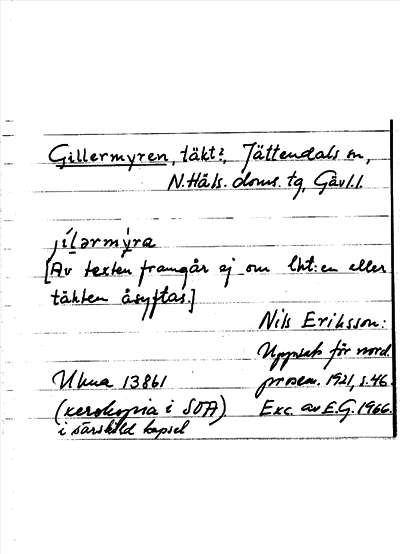 Gillermyren, täkt?, Jättendals sn,
N. Häls. doms. tg, Gävl. l.
jíl̥ərmy̆ra
[Av texten framgår ej om lht:en eller
täkten åsyftas.]
Nils Eriksson:
Uppsats för nord.
Uhua 13861 prosem. 1921, s. 46.
(xerokopia i SOA) Exc. av E.G. 1966.
i särskild kapsel